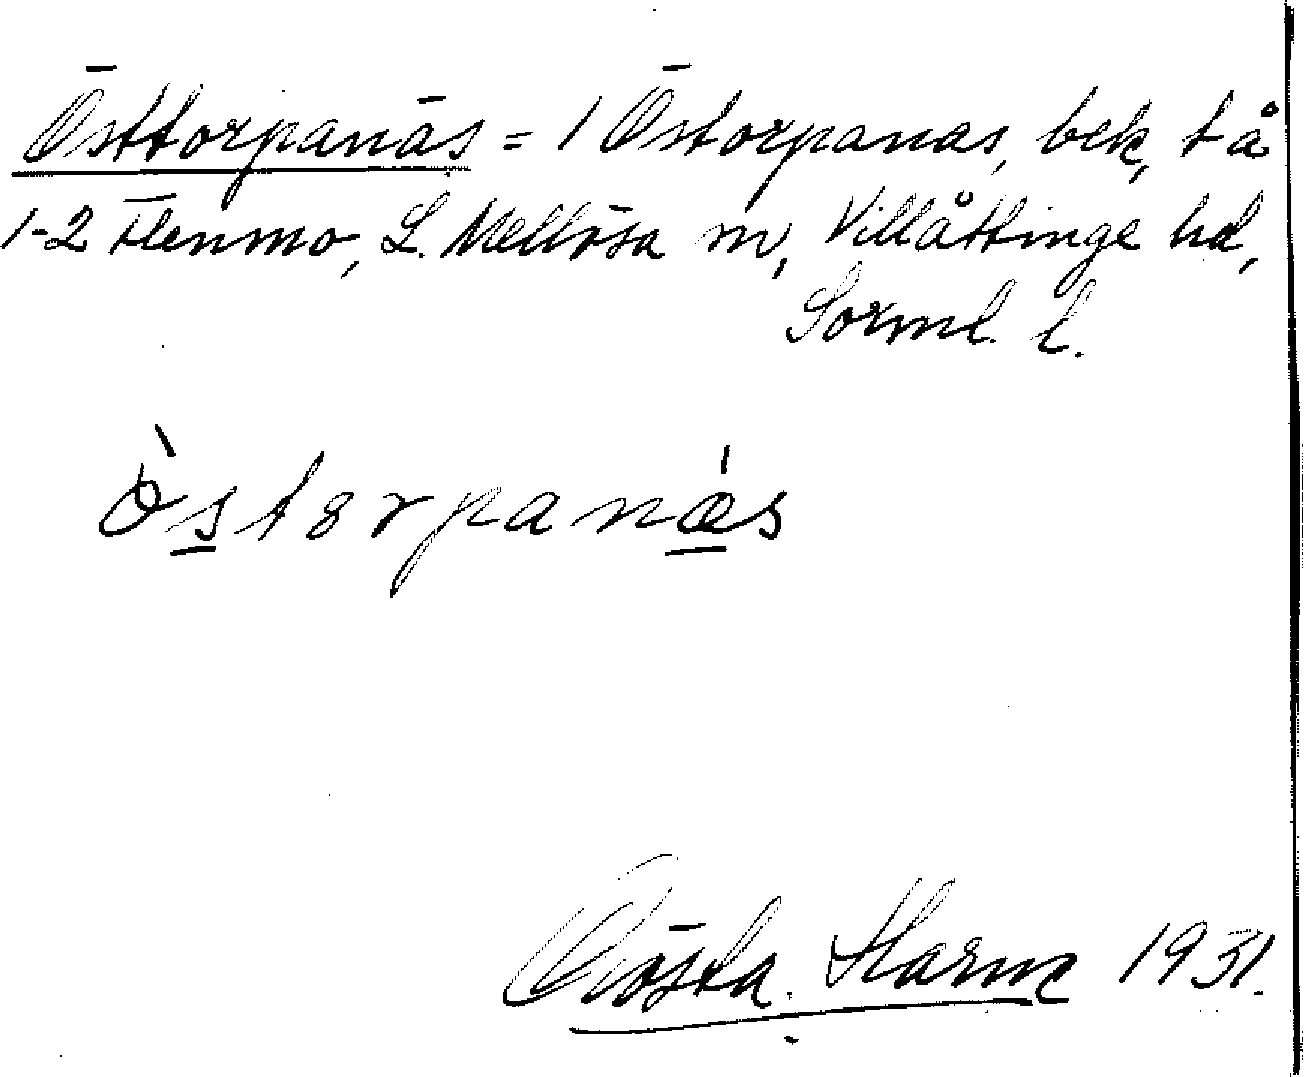 Östtorpanäs = 1 Östorpanas, bek, t å
1-2 Flenmo, L. Mellösa sn, Villåttinge hd,
Sörml. l.
Òstorpanæ´s
Gösta. Harm 1931.